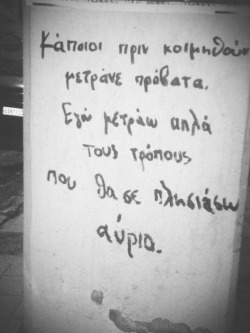 Κάποιοι πριν κοιμηθούν
μετράνε πρόβατα.
Εγώ μετράω απλά
τους τρόπους
που θα σε πλησιάσω
αύριο.